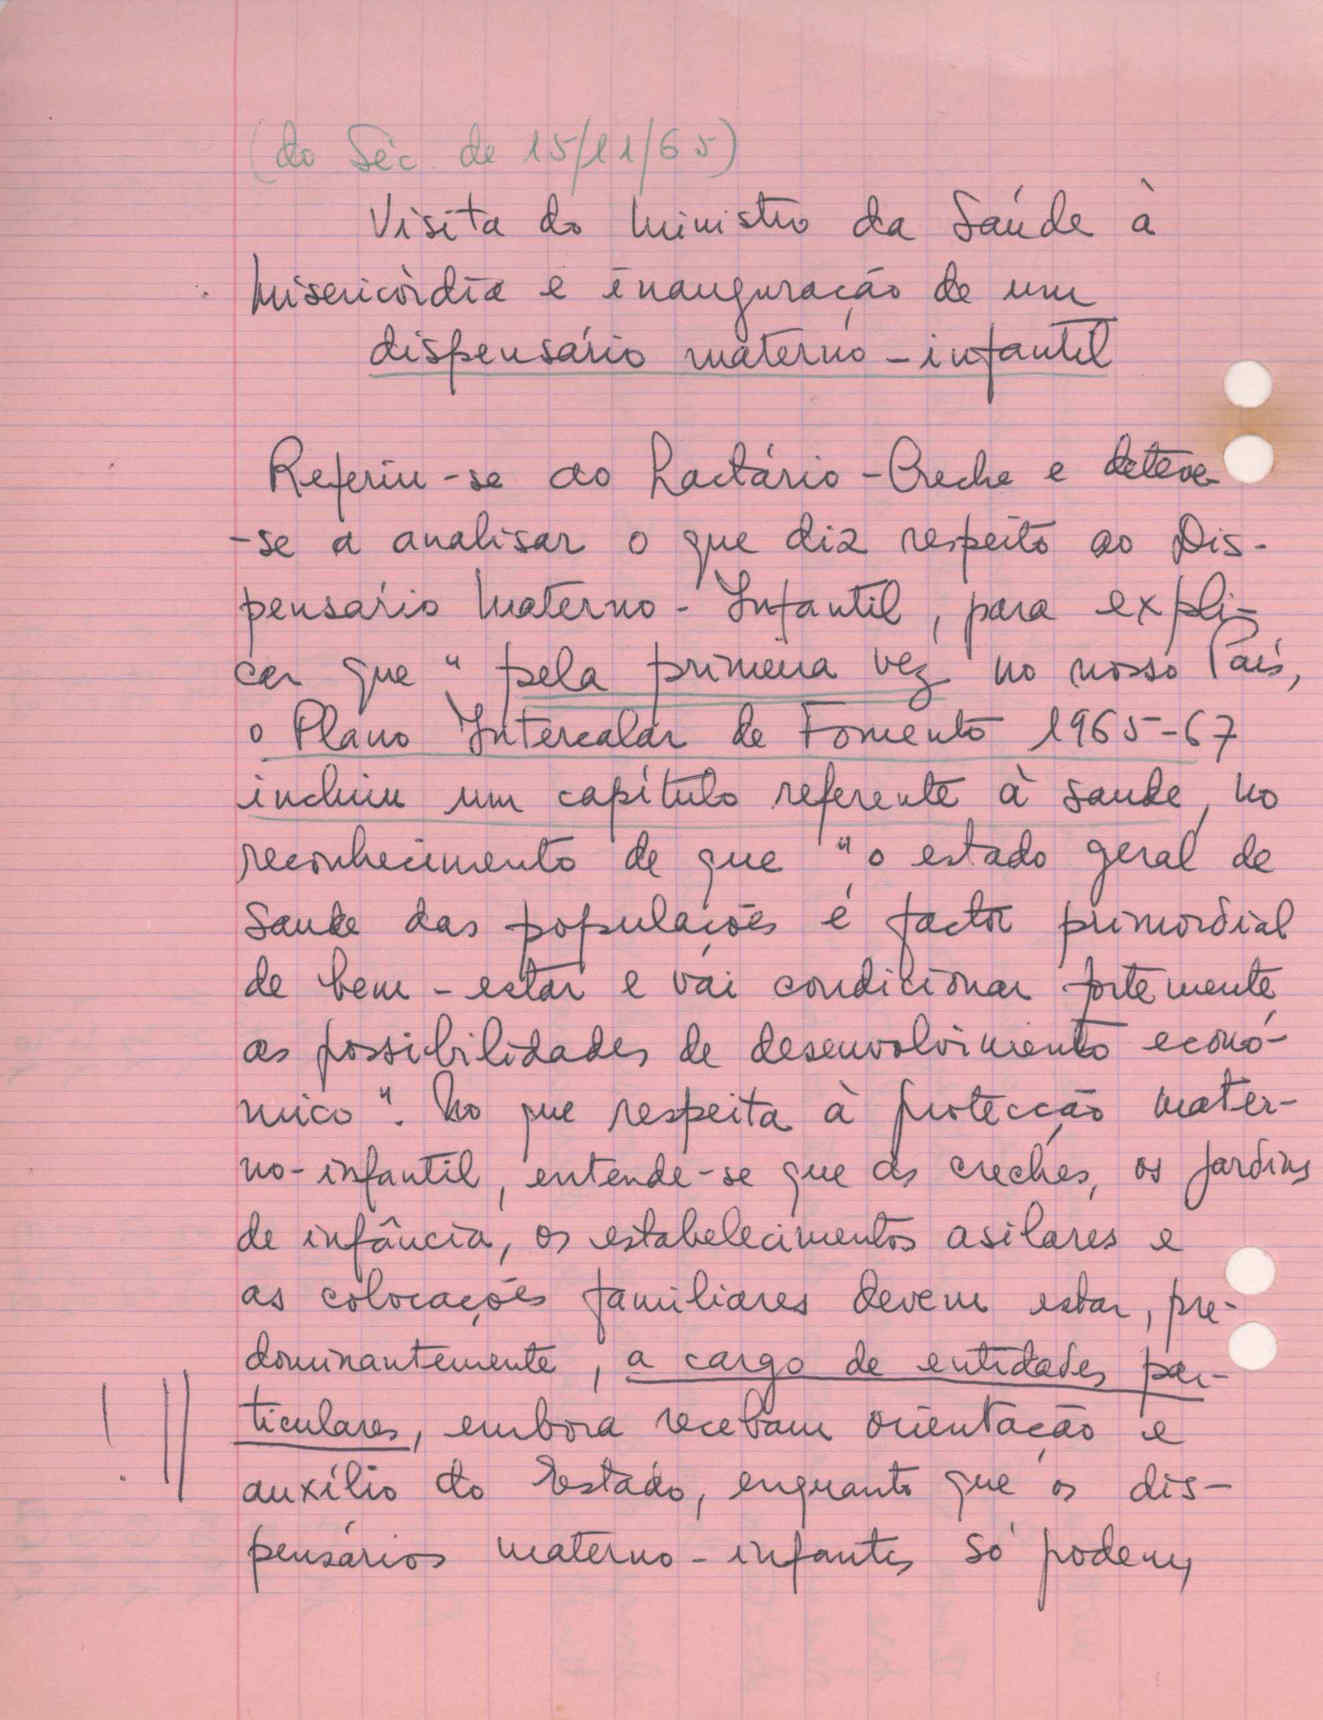 (do Séc. de 15/11/65)
Visita do Ministro da Saúde à
Misericórdia e inauguração de um
dispensário materno-infantil
Referiu-se ao Lactário-Creche e deteve-
-se a analisar o que diz respeito ao Dis-
pensário Materno-Infantil, para expli-
car que "pela primeira vez no nosso País,
o Plano Intercalar de Fomento 1965-67
incluiu um capítulo referente à saude, no
reconhecimento de que "o estado geral de
saude das populações é factor primordial
de bem-estar e vai condicionar fortemente
as possibilidades de desenvolvimento econó-
mico". No que respeita à protecção mater-
no-infantil, entende-se que as creches, os jardins
de infância, os estabelecimentos asilares e
as colocações familiares devem estar, pre-
dominantemente, a cargo de entidades par-
ticulares, embora recebam orientação e
! auxílio do Estado, enquanto que os dis-
pensários materno-infantis só podem,